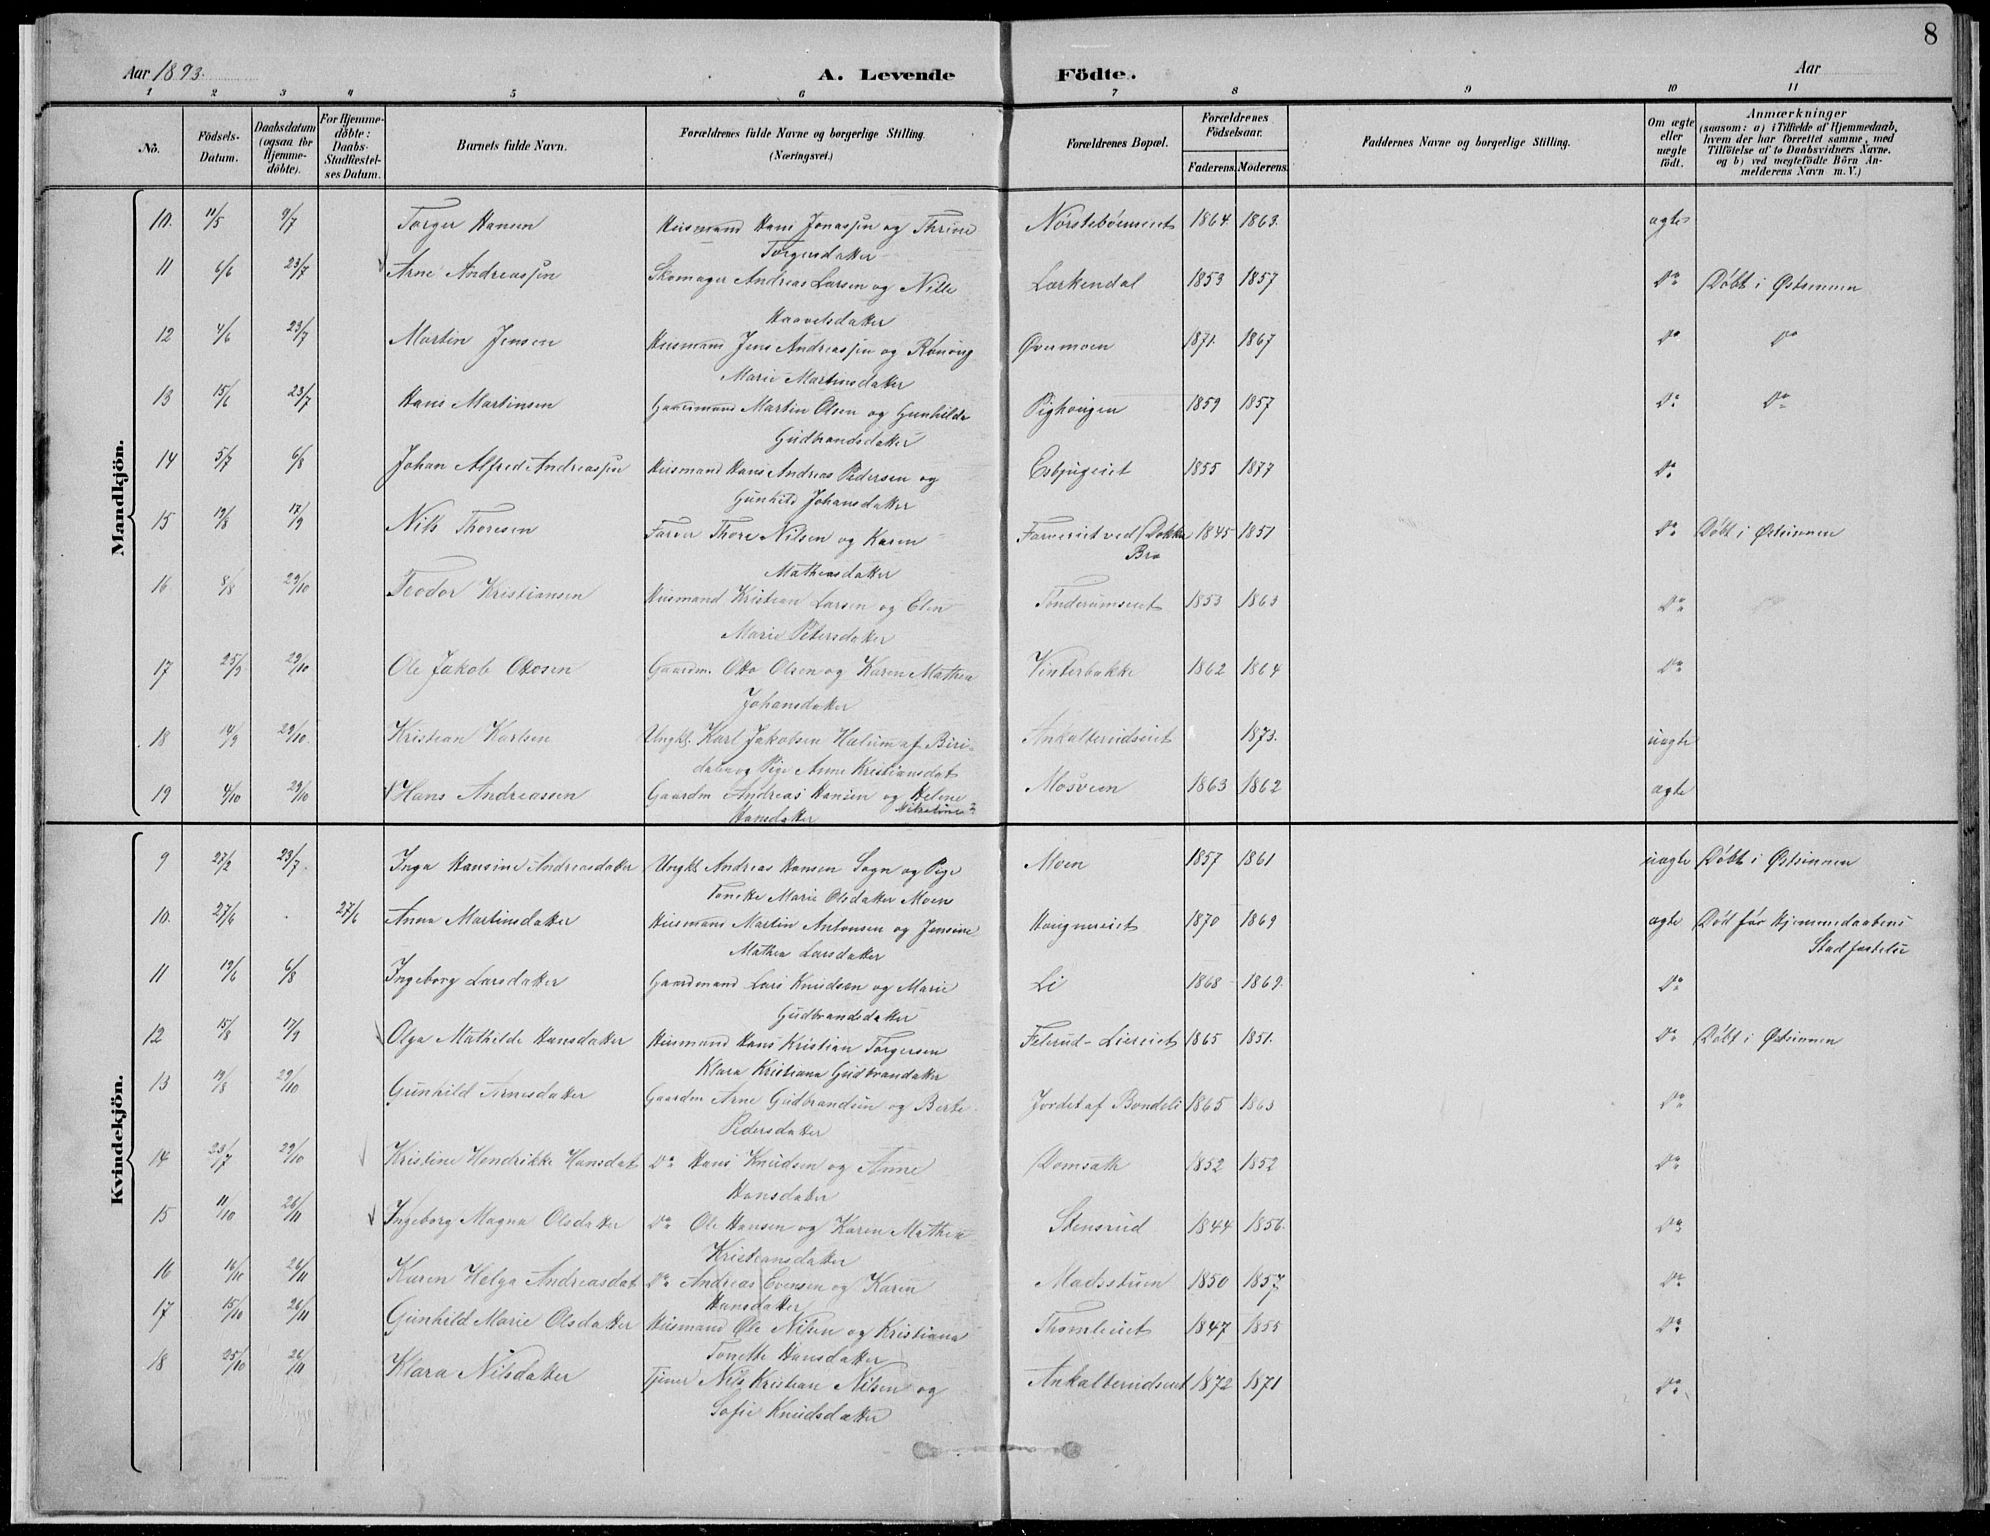 8
Aar 1893.
A. Levende Födte.
Aar
1 2 3 4 5 6 7 8 9 10 11
No.
Födsels-Datum.
Daabsdatum (ogsaa for Hjemme-döbte).
For Hjemme-döbte: Daabs-Stadfæstel-ses Datum.
Barnets fulde Navn.
Forældrenes fulde Navne og borgerlige Stilling. (Næringsvei.)
Forældrenes Bopæl.
Forældrenes Födselsaar.
Faderens. Moderens.
Faddernes Navne og borgerlige Stilling.
Om ægte eller uægte födt.
Anmærkninger
(saasom: a) i Tilfælde af Hjemmedaab, hvem der har forrettet samme, med Tilföielse af to Daabsvidners Navne, og b) ved uægtefödte Börn An-melderens Navn m. V.)
Mandkjön.
10. 11/5 9/7 Torger Hansen Husmand Hans Jonassen og Thrine Nørstebøenseiet 1864 1863. ægte
Torgersdatter
11 6/6 23/7 Arne Andreassen Skomager Andreas Larsen og Nille Lærkendal 1853 1857 Do Døbt i Østsinnen
Haavelsdatter
12 4/6 23/7 Martin Jensen Husmand Jens Andreassen og Rønnøug Øvermoen 1871. 1867 Do Do
Marie Martinsdatter
13 15/6 23/7 Hans Martinsen Gaardmand Martin Olsen og Gunhilde Pighougen 1859 1857 Do Do
Gudbrandsdatter
14 5/7 6/8 Johan Alfred Andreassen Husmand Hans Andreas Pedersen og Esbjugeiet 1855 1877 Do
Gunhild Johansdatter
15 19/8 17/9 Nils Thoresen Farver Thore Nilsen og Karen Farveriet ved Dokka 1845 1851 Do Døbt i Østsinnen
Bro
Matheasdatter
16 8/8 29/10 Teodor Kristiansen Husmand Kristian Larsen og Elen Tønderumseiet 1853 1863 Do
Marie Petersdatter
17 25/9 29/10 Ole Jakob Ottosen Gaardm. Otto Olsen og Karen Mathea Vinterbakke 1862 1864 Do
Johansdatter
18 14/9 29/10 Kristian Karlsen Ungkl. Karl Jakobsen Hælum af Biri- Ankalterudseiet 1873. uægte
dalen og Pige Anne Kristiansdat
19 4/10 29/10 Hans Andreassen Gaardm Andreas Hansen og Helene Mosveen 1863 1862 ægte
Hansdatter
Kvindekjön.
9 27/2 23/7. Inga Hansine Andreasdatter Ungkl. Andreas Hansen Sogn og Pige Moen 1857 1861 uægte Døbt i Østsinnen
Tonette Marie Olsdatter Moen
10. 27/6 27/6 Anna Martinsdatter Husmand Martin Antonsen og Jensine Haugnereiet 1870 1869 ægte Død før Hjemmedaabens
Mathea Larsdatter Stadfæstelse
11 19/6 6/8 Ingeborg Larsdatter Gaardmand Lars Knudsen og Marie Li 1868 1869. Do
Gudbrandsdatter
12 15/8 17/9 Olga Mathilde Hansdatter Husmand Hans Kristian Torgersen Felerud-Liereiet 1865 1851. Do Døbt i Østsinnen
Klara Kristiana Gudbrandatter
13 19/8 29/10 Gunhild Arnesdatter Gaardm Arne Gudbrandsen og Berte Jordet af Bondeli 1865 1863 Do
Pedersdatter
14 23/7 29/10 Kristine Hendrikke Hansdat Do Hans Knudsen og Anne Domsath 1852 1852 Do
Hansdatter
15 11/10 26/11 Ingeborg Magna Olsdatter Do Ole Hansen og Karen Mathea Stensrud 1844 1856. Do
Kristiansdatter
16 16/10 26/11 Karen Helga Andreasdat Do Andreas Evensen og Karen Madsstuen 1850 1857 Do
Hansdatter
17 15/10 26/11 Gunhild Marie Olsdatter Husmand Ole Nilsen og Kristiana Thomleiet 1847 1855 Do
Tonette Hansdatter
18 25/10 26/11 Klara Nilsdatter Tjener Nils Kristian Nilsen og Ankalterudseiet 1872 1871 Do
Sofie Knudsdatter